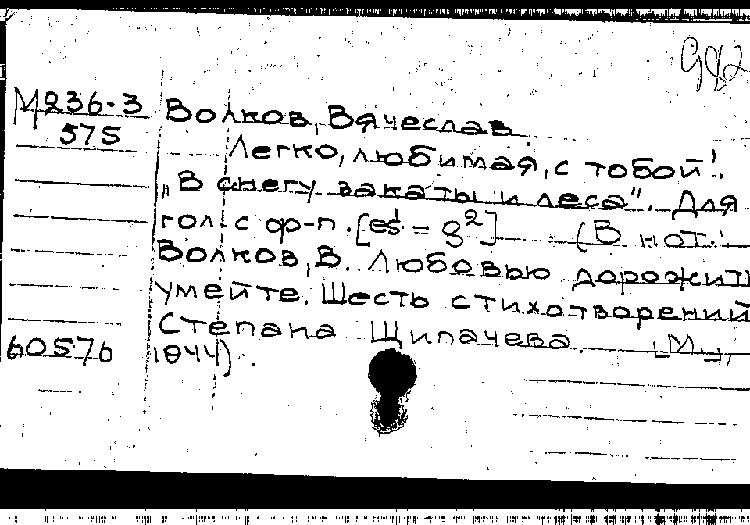 982
М236-3 Волков, Вячеслав.
575
Легко, любимая, с тобой!.
„В снегу закаты и леса". Для
гол. с ф-п. [es¹ = g²] (В нот.:
Волков, В. Любовью дорожить
умейте. Шесть стихотворений
Степана Щипачева. [М.],
60576 1944).